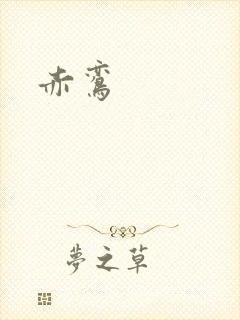 赤鸞
夢之草